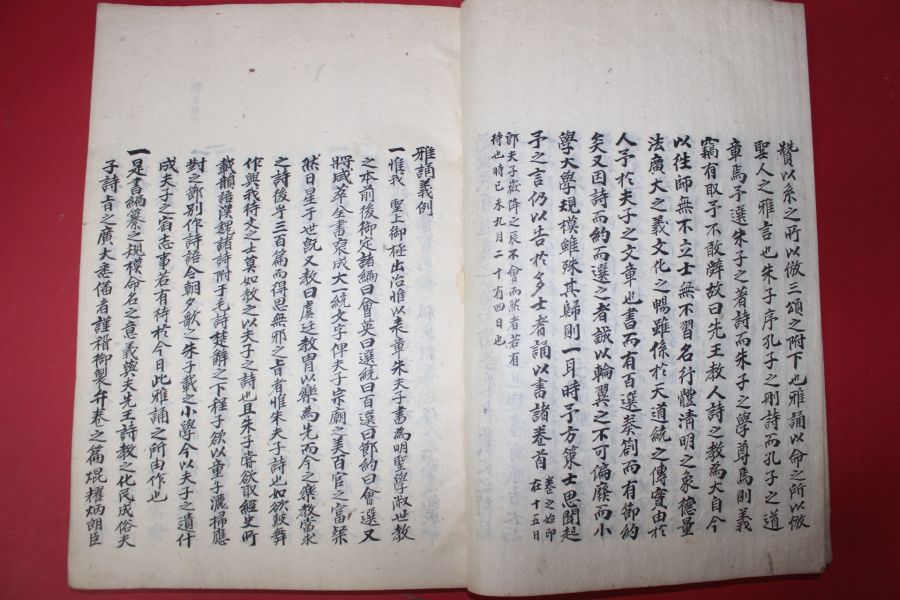 贊以系之所以倣三頌之附下也雅誦以命之所以倣
聖人之雅言也朱子序孔子之刪詩而孔子之道
章焉予選朱子之著詩而朱子之學尊焉則義
竊有取予不敢辭故曰先王敎人詩之敎為大自今
以往師無不立士無不習名行體清明之象德量
法廣大之義文化之暢雖係於天道統之傳寔由於
人予於夫子之文章也書而有百選奏劄而有御約
矣又因詩而約而選之者誠以輪翼之不可偏廢而小
學大學規模雖殊其歸則一耳時予方策士思聞起
予之言仍以告於多士者誦以書諸卷首 卷之始印在十五日
郭夫子嶽降之辰不會而然者若有
待也時己未九月二十有四日也
雅誦義例
一惟我 聖上御極出治惟以表章朱夫子書為明聖學淑世敎
之本前後御定諸編曰會英曰選統曰百選曰節約曰會選又
將咸萃全書裒成大一統文字俾夫子宗廟之美百官之富粲
然日星于世旣又敎曰虞廷敎冑以樂為先而今之樂敎當求
之詩後乎三百篇而得思無邪之旨者惟朱夫子詩也如欲鼓舞
作興我待文之士莫如敎之以夫子之詩也且朱子嘗欲取經史所
載韻語漢魏諸詩附于毛詩楚辭之下程子欲以童子灑掃應
對之節別作詩語令朝夕歌之朱子載之小學今以夫子之遺什
成夫子之宿志事若有待於今日此雅誦之所由作也
一是書編纂之規模命名之意義與夫先王詩敎之化民成俗夫
子詩旨之廣大悉備者謹稽御製弁卷之篇焜耀炳朗臣